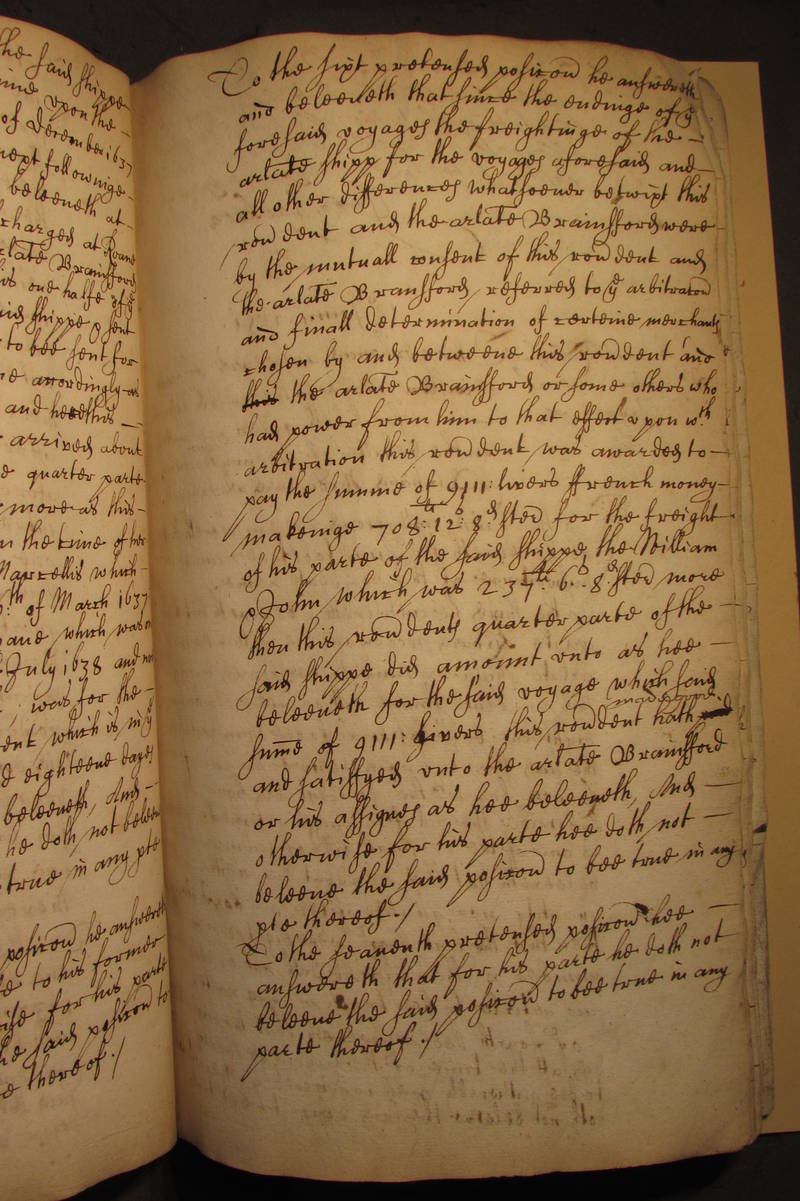 the said shippe
upon the
of December 1637
next followinge
beleeveth at
charged at Roane
arlate Bramfford
his one halfe of ye
said shippe & sent
to bee sent for
accordingly as
and hee this
arrived about
quarter parte
more as this
in the time of her
Marcellis which
th of March 1637
which was
July 1638 and
was for the
which is in ye
eighteene dayes
beleeveth, And
he doth not beleeve
true in any pte
posicon he answereth
to his former
for his parte
the said posicon to
thereof ./
To the sixt pretensed posicon he answereth
and beleeveth that since the endinge of ye
foresaid voyages the freightinge of the
arlate shipp for the voyages aforesaid and
all other differences whatsoever betwixt this
rondent and the arlate Bramfford were
by the mutuall consent of this rondent and
the arlate Bramfford, referred to ye arbitracon
and finall determination of certeine merchants
chosen by and betweene this rondent and
this the arlate Bramfford or some others who
had power from him to that effect upon wch
arbitration this rondent was awarded to
pay the summe of 9111: livers ffrench money
makeinge 708:li 12s: 8d sterl for the freight
of his parte of the said shippe the William
& John which was 237:li 6s: 8d sterl more
then this rondents quarter parte of the
said shippe did amount unto as hee
beleeveth for the said voyage which said
summe of 9111: livers this rondent hath
and satisfyed unto the arlate Bramfford
or his assignes as hee beleeveth, And
otherwise for his parte hee doth not
beleeve the said posicon to bee true in any
pte thereof ./
To the seaventh pretensed posicon hee
answereth that for his parte he doth not
beleeve the said posicon to bee true in any
parte thereof ./